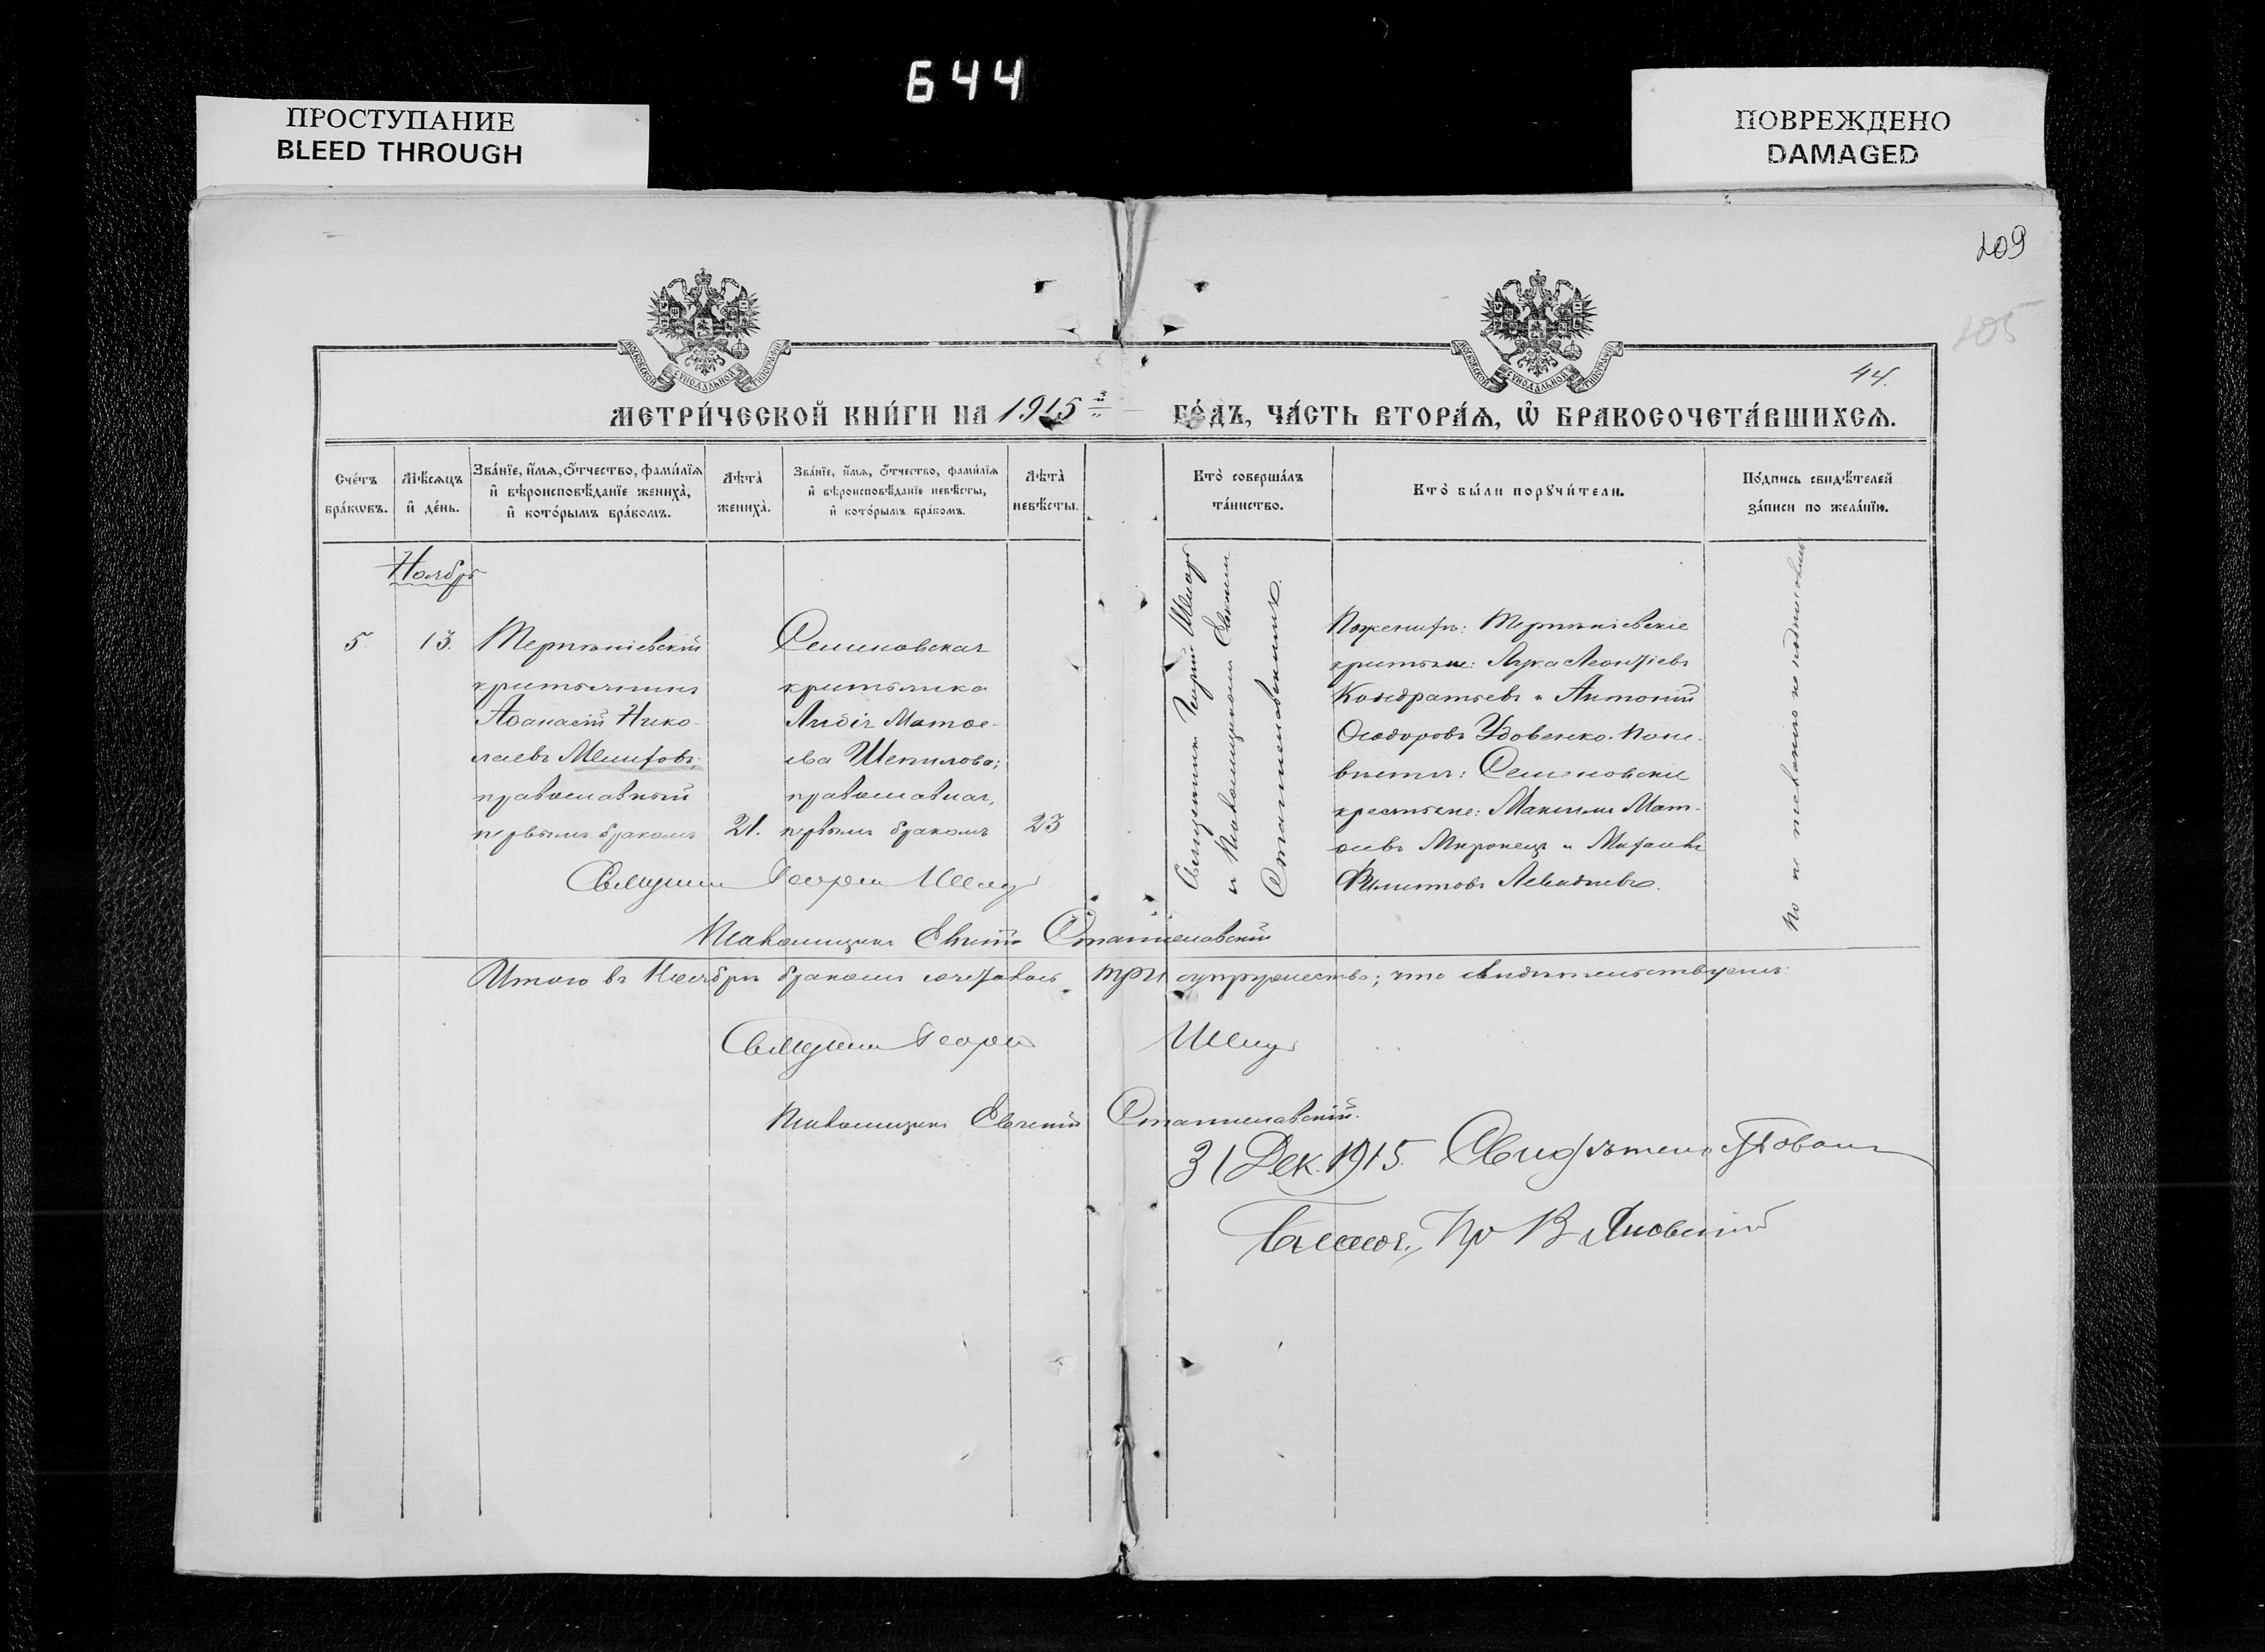 644
ПРОСТУПАНИЕ
BLEED THROUGH
ПОВРЕЖДЕНО
DAMAGED
209
205
44.
МОСКОВСКОЙ СѴНОДАЛЬНОЙ ТИПОГРАФІИ
МОСКОВСКОЙ СѴНОДАЛЬНОЙ ТИПОГРАФІИ
МЕТРИ́ЧЕСКОЙ КНИ́ГИ НА 1915й ГО́ДЪ, ЧА́СТЬ ВТОРА́Я, Ѡ БРАКОСОЧЕТА́ВШИХСЯ.
Сче́тъ бра́кѡвъ.
Мѣ́сяцъ и де́нь.
Зва́нїе, и́мя, о́тчество, фами́лїя и вѣроисповѣ́данїе жениха̀, и кото́рымъ бра́комъ.
Лѣта̀ жениха̀.
Зва́нїе, и́мя, о́тчество, фами́лїя и вѣроисповѣ́данїе невѣ́сты, и кото́рымъ бра́комъ.
Лѣта̀ невѣ́сты.
Кто̀ соверша́лъ та́инство.
Кто̀ бы́ли поручи́тели.
По́дпись свидѣ́телей за́писи по жела́нїю.
Ноябрь
5
13.
крестьянинъ
Аѳанасій Нико-
лаевъ
православный
первымъ бракомъ
21.
Семеновская
крестьянка
Лидія Матѳе-
ева Шепилова;
православная,
первымъ бракомъ
23
Священникъ Георгій
и Псаломщикъ Евгеній
Станиславскій.
По женихѣ:
крестьяне: Лука Леонтіевъ
Кондратьевъ и Антоній
Ѳеодоровъ Удовенко. По не-
вѣстѣ: Семеновскіе
крестьяне: Максимъ Мат-
ѳеевъ Миронецъ и Михаилъ
Филиповъ
Священникъ Георгій
Псаломщикъ Евгеній Станиславскій
Итого въ Ноябрѣ бракомъ сочеталось три супружества; что свидѣтельствуемъ:
Священникъ Георгій
Псаломщикъ Евгеній Станиславскій.
31 Дек. 1915. Свидѣтельствовалъ
Благоч. Пр В Яновскій